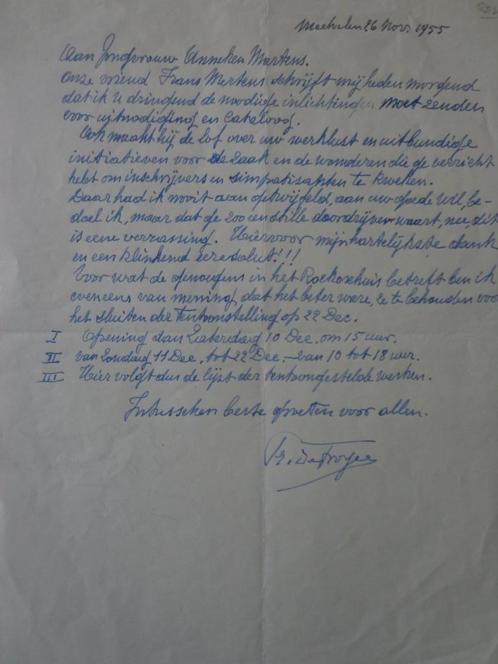 Mechelen 26 Nov. 1955
Aan Jongvrouw Anneken Mertens.
Onze vriend Frans Mertens schrijft mij heden morgend
dat ik u dringend de noodige inlichtingen moet zenden
voor uitnodiging en Cataloog.
Ook maakt hij de lof over uw werklust en uitbundige
initiatieven voor de zaak en de wonderen die ge verricht
hebt om inschrijvers en simpatisanten te kweken.
Daar had ik nooit aan getwijfeld, aan uw goede wil, be-
doel ik, maar dat ge zoo een stille doordrijver waart, nee, dit
is eene verrassing. Hiervoor mijn hartelijkste dank
en een klinkend eeresaluut!!!
Voor wat de opnoeging in het Rockoxhuis betreft ben ik
eveneens van mening, dat het beter ware, ze te behouden voor
het sluiten der tentoonstelling op 22 Dec.
I Opening dan Zaterdag 10 Dec. om 15 uur.
II van Zondag 11 Dec. tot 22 Dec. – van 10 tot 18 uur.
III Hier volgt dan de lijst der tentoongestelde werken.
Intusschen beste groeten voor allen.